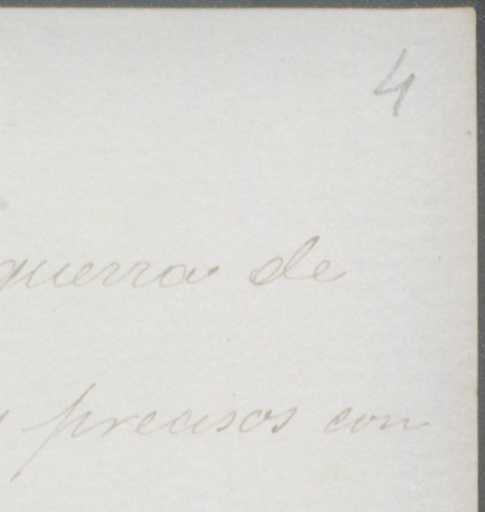 4
guerra de
precisos con